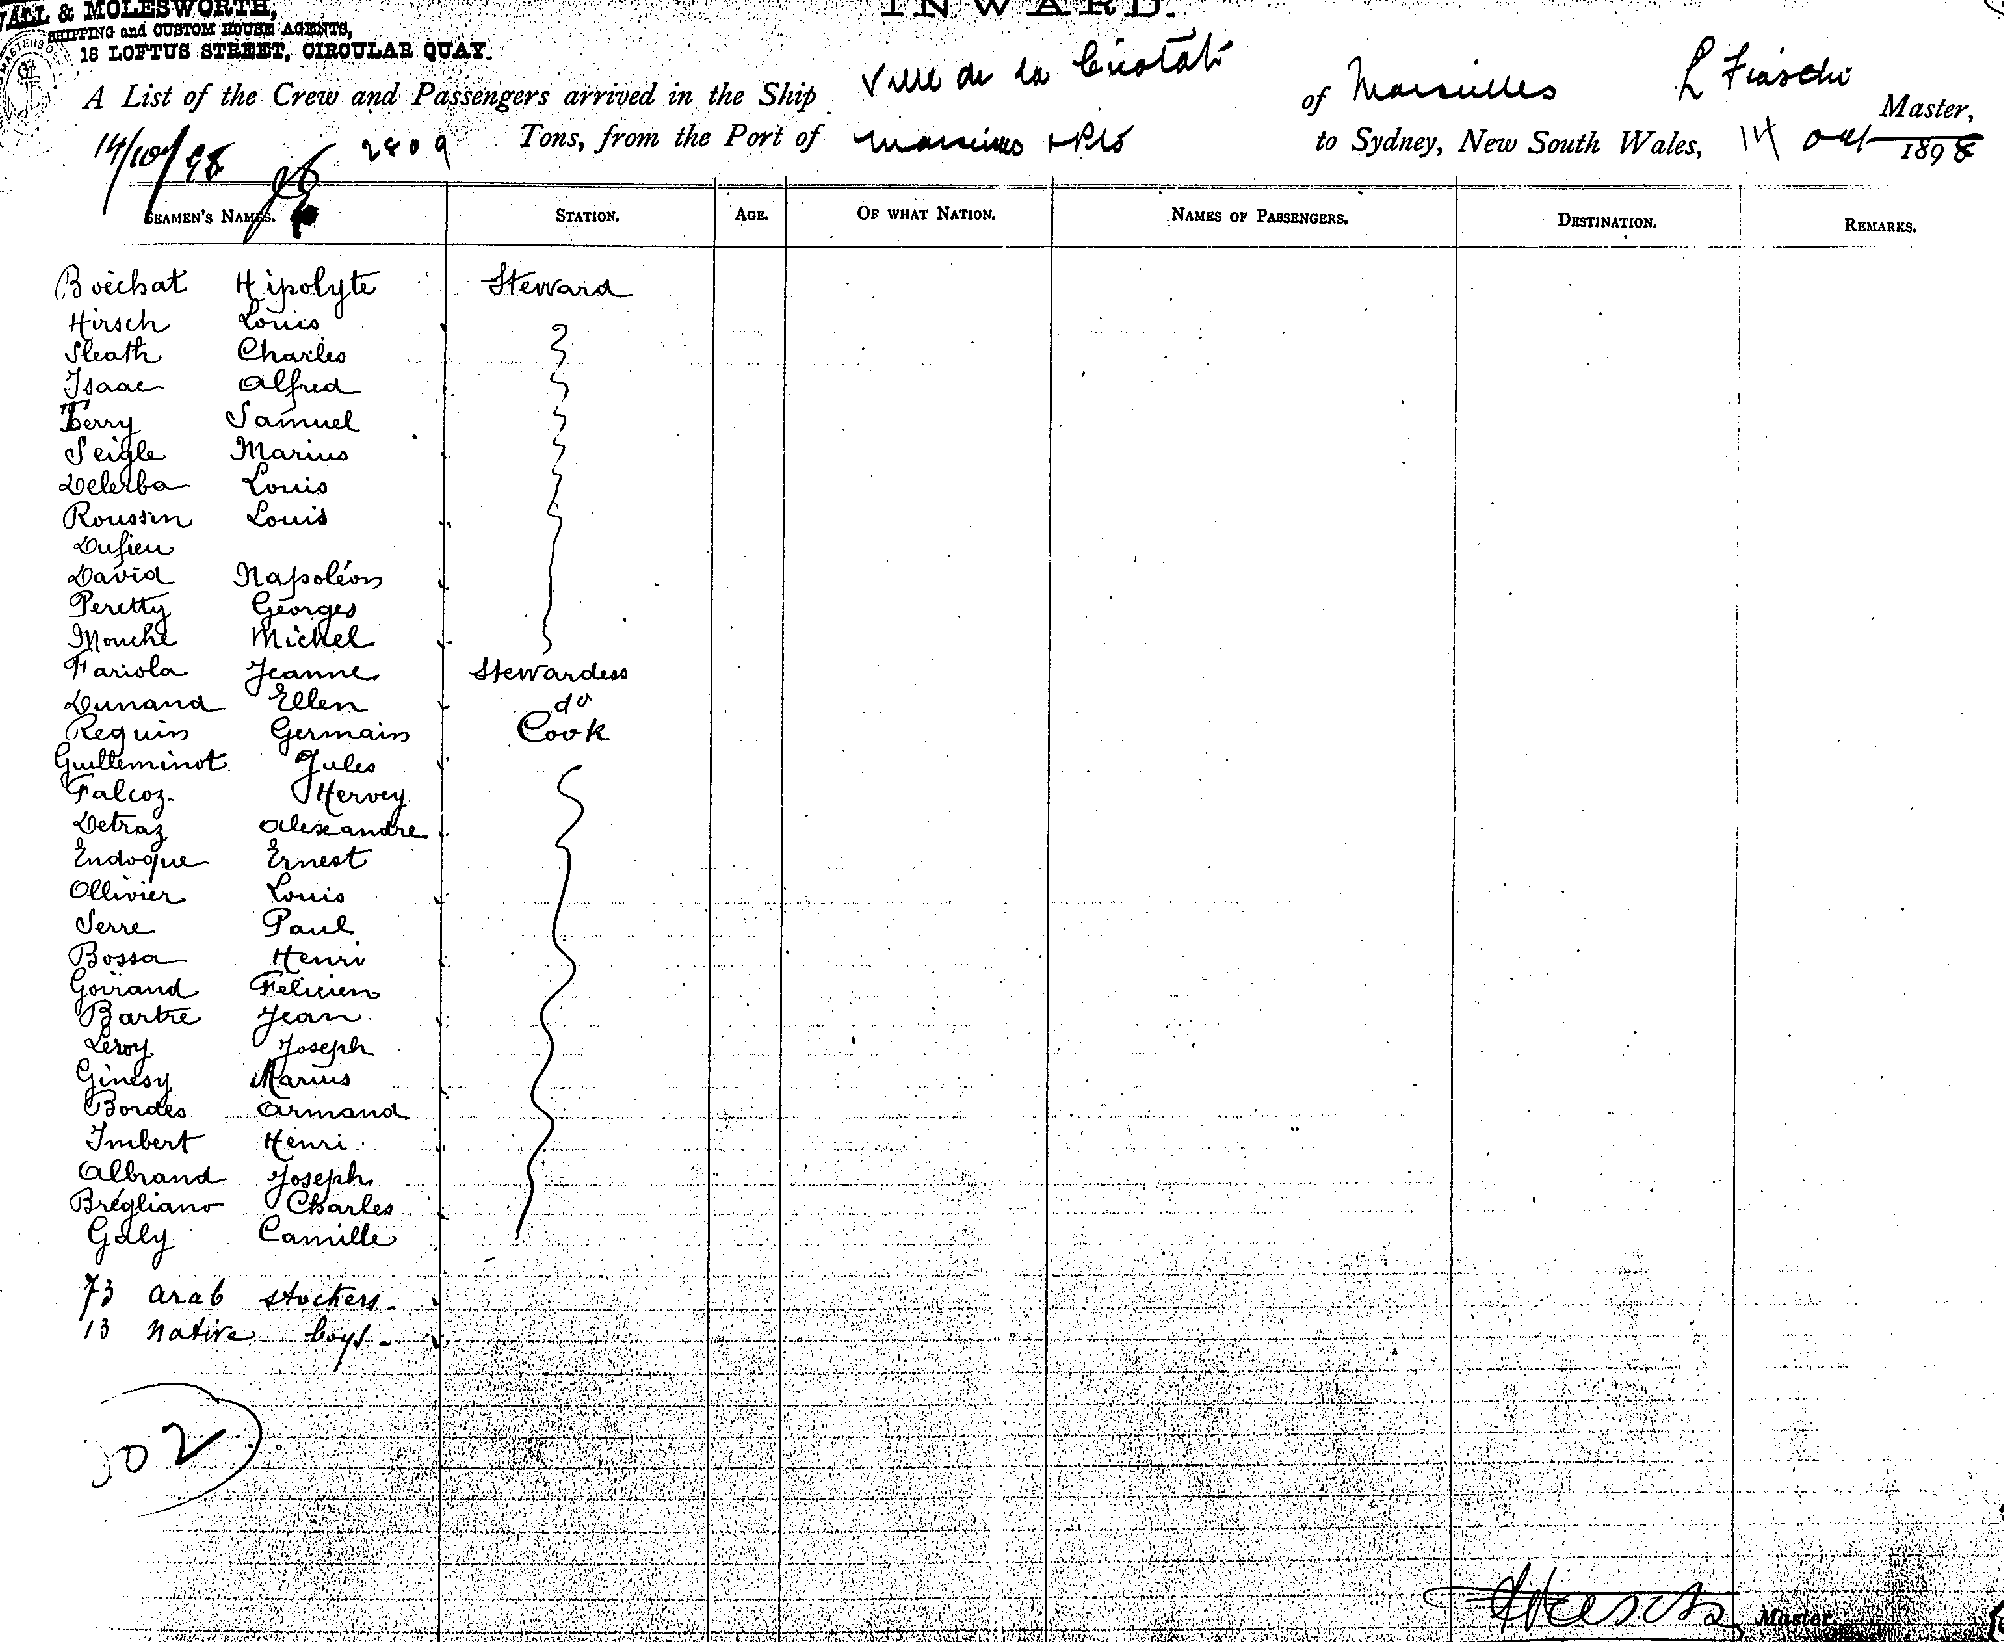 & MOLESWORTH,
SHIPPING and CUSTOM HOUSE AGENTS,
18 LOFTUS STREET, CIRCULAR QUAY.
INWARD.
A List of the Crew and Passengers arrived in the Ship Ville de la Ciotat of Marseilles L Fiaschi Master,
14/10/98 2809 Tons, from the Port of Marseilles + Pts to Sydney, New South Wales, 14 Oct 1898
SEAMEN'S NAMES. STATION. AGE. OF WHAT NATION. NAMES OF PASSENGERS. DESTINATION. REMARKS.
Boéchat Hipolyte Steward
Hirsch Louis
Sleath Charles
Isaac Alfred
Terry Samuel
Seigle Marius
Delerba Louis
Roussin Louis
Dufieu
David Napoléon
Peretty Georges
Mouche Michel
Fariola Jeanne Stewardess
Dunand Ellen do
Requin Germain Cook
Guilleminot Jules
Falcoz Hervey
Detraz Alexandre
Endoque Ernest
Ollivier Louis
Serre Paul
Bossa Henri
Goirand Felicien
Bartre Jean
Leroy Joseph
Ginesy Marius
Bordes Armand
Imbert Henri
Albrand Joseph
Brégliano Charles
Galy Camille
73 Arab Stockers
13 Native boys
Master